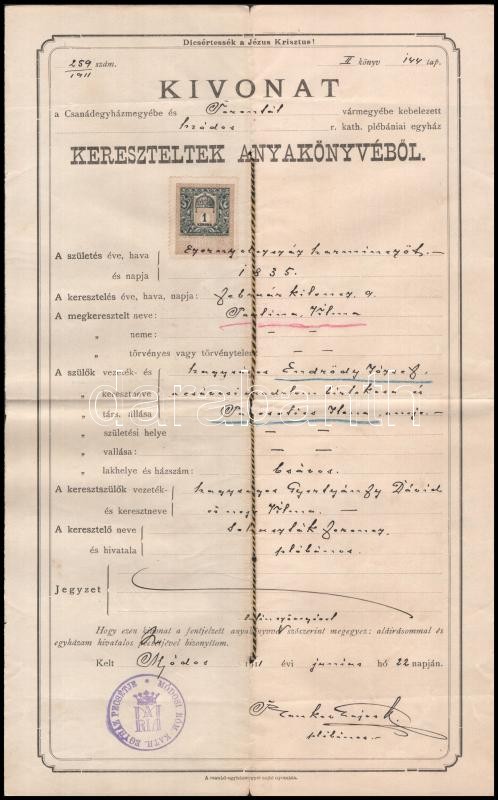 Dicsértessék a Jézus Krisztus!
259 szám. II könyv 144 lap.
1911
KIVONAT
a Csanádegyházmegyébe és Torontál vármegyébe kebelezett
r. kath. plébániai egyház
KERESZTELTEK ANYAKÖNYVÉBŐL.
1
A születés éve, hava
és napja 1835.
A keresztelés éve, hava, napja: Február kilencz, 9
A megkeresztelt neve: Paulina, Vilma
„ neme: — —
„ törvényes vagy törvénytelen — —
A szülők vezeték- és nagyságos Endrődy József
„ keresztneve
„ társ. állása Ilona
„ születési helye — —
„ vallása: — —
„ lakhelye és házszám:
A keresztszülők vezeték- nagyságos Gyertyánffy Dávid
és keresztneve és neje Vilma —
A keresztelő neve Ferencz
és hivatala plébános.
Jegyzet
Hogy ezen kivonat a fentjelzett anyakönyvvel szószerint megegyez: aláirásommal és
egyházam hivatalos pecsétjével bizonyitom.
Kelt Módos 1911 évi junius hó 22 napján.
MÓDOSI RÓM. KATH. EGYHÁZ PECSÉTJE
plébános.
A csanád-egyházmegyei sajtó nyomása.
darabanth